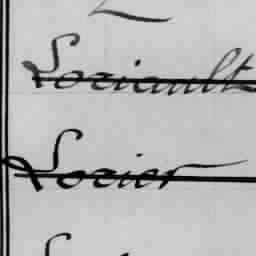 Loricault
Lorier